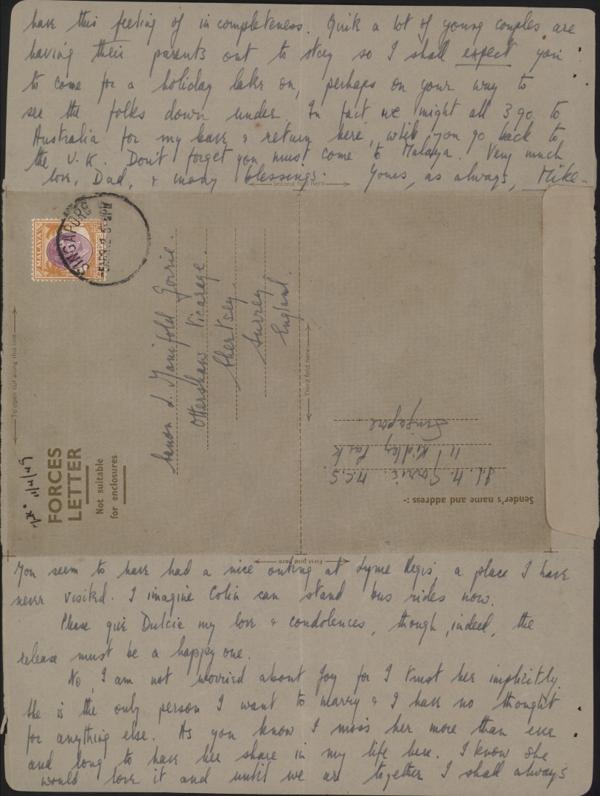 have this feeling of incompleteness. Quite a lot of young couples are
having their parents out to stay so I shall expect you
to come for a holiday later on, perhaps on your way to
see the folks down under. In fact we might all 3 go to
Australia for my leave & return here, while you go back to
the U.K. Don't forget you must come to Malaya. Very much
love, Dad, & many blessings. Yours, as always, Mike.
Second fold here
MALAYA
SINGAPORE
Canon L. Manifold Gorrie.
Ottershaw Vicarage.
Chertsey.
Surrey.
England.
To open cut along this line
You fold here
FORCES
LETTER
Not suitable
for enclosures
Sender's name and address :-
Gorrie. M.C.S.
11 Ridley Park
Singapore
First fold here
You seem to have had a nice outing at Lyme Regis, a place I have
never visited. I imagine Colin can stand bus rides now.
Please give Dulcie my love & condolences, though, indeed, the
release must be a happy one.
No, I am not worried about Joy for I trust her implicitly
She is the only person I want to marry & I have no thought
for anything else. As you know I miss her more than ever
and long to have her share in my life here. I know she
would love it and until we are together I shall always